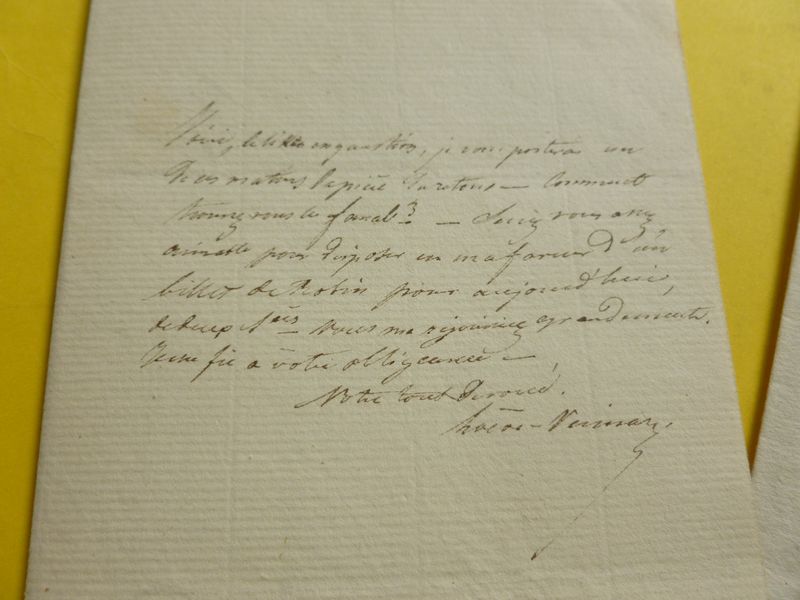 Voici, le billet en question, je vous porterai un
de ces matins la pièce
trouvez vous le fanal? — Seriez vous assez
aimable pour disposer en ma faveur d'un
billet de Robin pour aujourd'hui,
de deux vous me réjouiriez grandement.
Je me fie à votre obligeance —
Votre tout dévoué.
Loève-Veimars